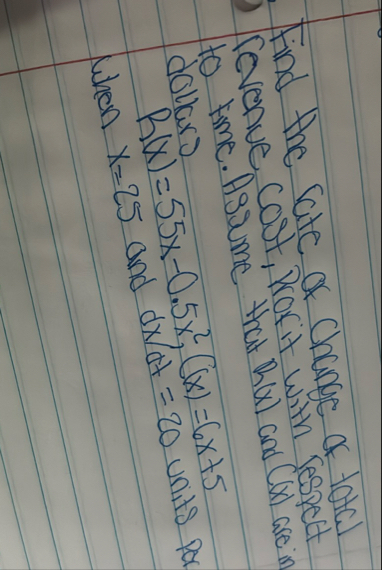 Find the rate of change of total
revenue, cost, profit with respect
to time. Assume that R(x) and C(x) are in
dollars
R(x) = 55x - 0.5x² C(x) = 6x + 5
when x = 25 and dx/dt = 20 units per